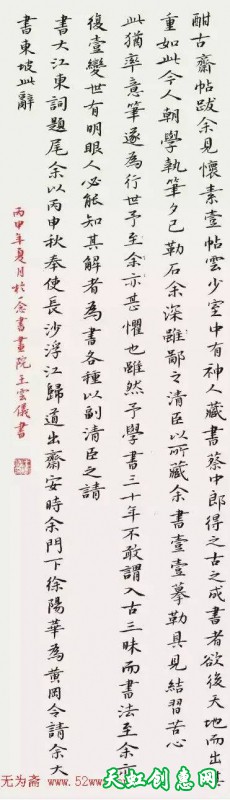 酣古齋帖跋余見懷素壹帖雲少室中有神人藏書蔡中郎得之古之成書者欲後天地而出其
重如此令人朝學執筆夕已勒石余深雖鄙之清臣以所藏余書壹壹摹勒具見結習苦心
此猶率意筆遂為行世予至余亦甚懼也雖然予學書三十年不敢謂入古三昧而書法至余亦
復壹變世有明眼人必能知其解者為書各種以副清臣之請
書大江東詞題尾余以丙申秋奉使長沙浮江歸道出齋安時余門下徐陽華為黃岡令請余大
書東坡此辭
丙申年夏月於念書畫院王雲儀書
无为斋 www.52w
天虹创意网